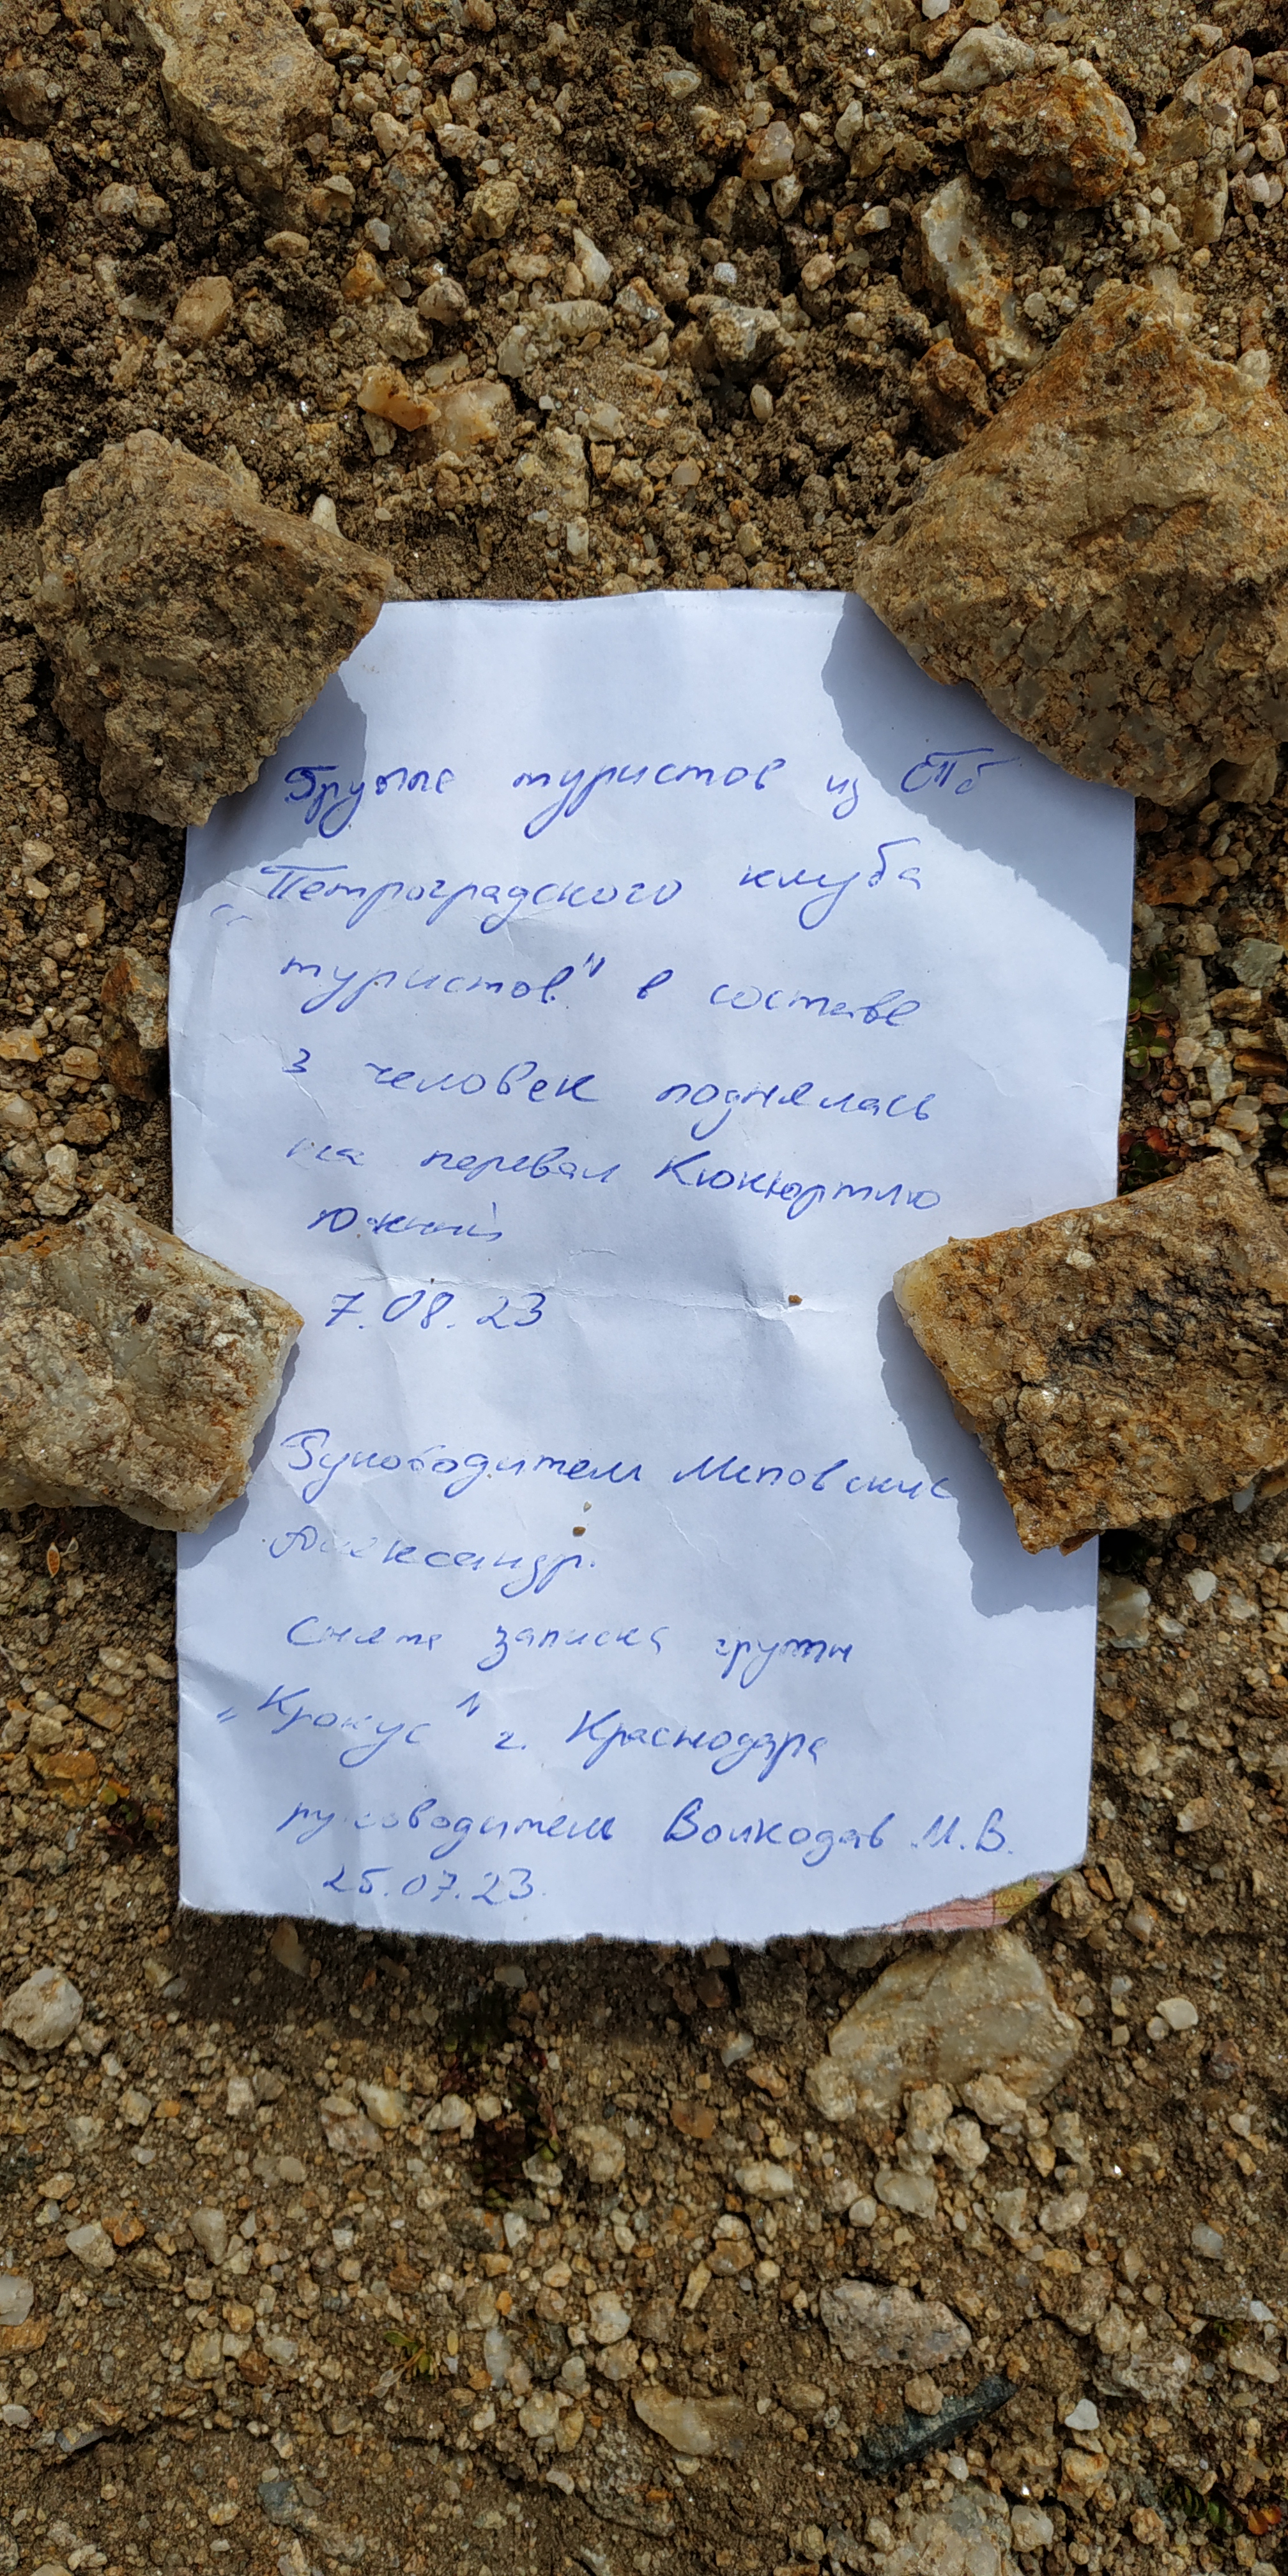 Группа туристов из СПб
„Петроградского клуба
туристов" в составе
3 человек поднялась
на перевал Кюкюртлю
Южный
7.08.23
Руководитель
Александр.
Снята записка группы
„Крокус" г. Краснодара
руководитель Волкодав М.В.
25.07.23.